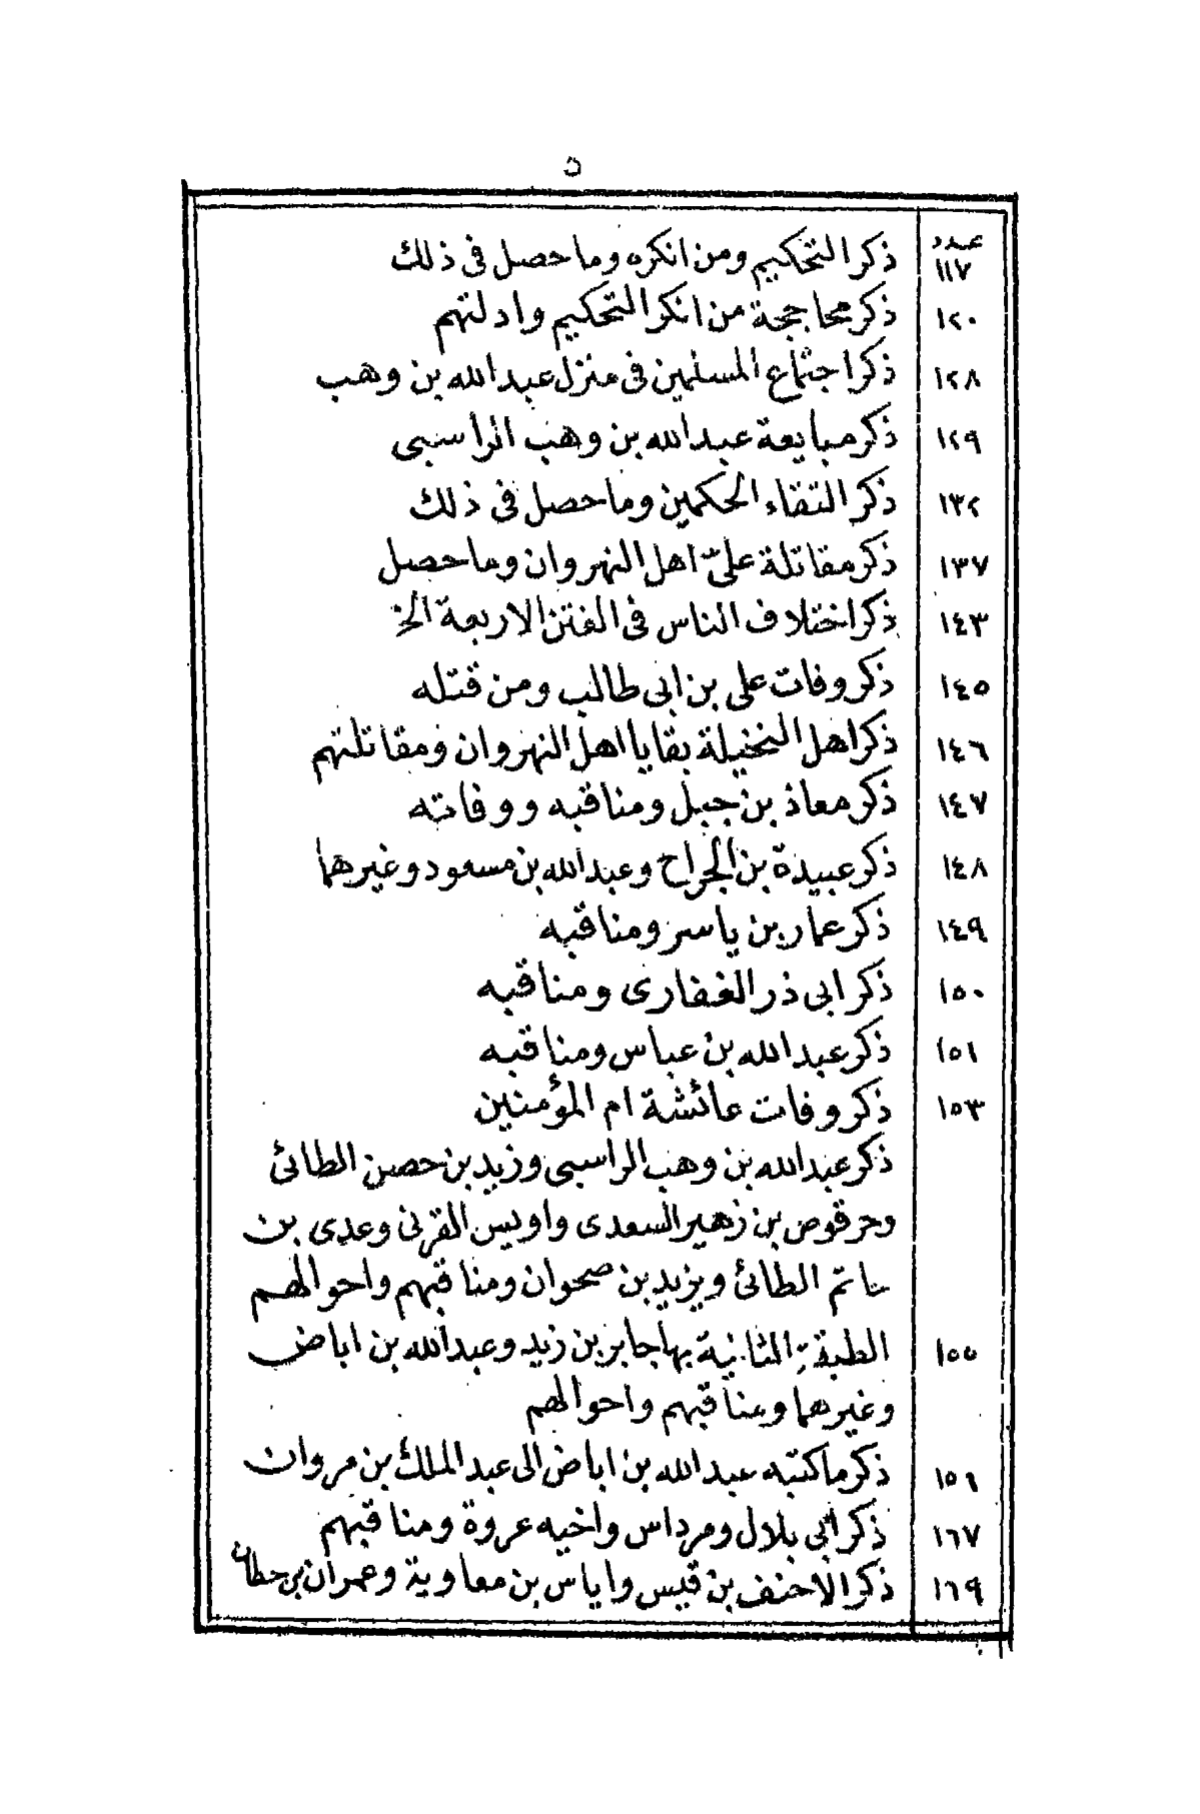 ٥
عدد
١١٧ ذكر التحكيم ومن انكره وما حصل فى ذلك
١٢٠ ذكر محاججة من انكر التحكيم وادلتهم
١٢٨ ذكر اجتماع المسلمين فى منزل عبد الله بن وهب
١٢٩ ذكر مبايعة عبد الله بن وهب الراسبى
١٣٢ ذكر التقاء الحكمين وما حصل فى ذلك
١٣٧ ذكر مقاتلة علىّ اهل النهروان وما حصل
١٤٣ ذكر اختلاف الناس فى الفتن الاربعة الخ
١٤٥ ذكر وفات على بن ابى طالب ومن قتله
١٤٦ ذكر اهل النخيلة بقايا اهل النهروان ومقاتلتهم
١٤٧ ذكر معاذ بن جبل ومناقبه ووفاته
١٤٨ ذكر عبيدة بن الجراح وعبد الله بن مسعود وغيرهما
١٤٩ ذكر عمار بن ياسر ومناقبه
١٥٠ ذكر ابى ذر الغفارى ومناقبه
١٥١ ذكر عبد الله بن عباس ومناقبه
١٥٣ ذكر وفات عائشة ام المؤمنين
ذكر عبد الله بن وهب الراسبى وزيد بن حصن الطائئ
وحرقوص بن زهير السعدى واويس القرنى وعدى بن
حاتم الطائئ ويزيد بن صحوان ومناقبهم واحوالهم
١٥٥ الطبقة الثانية بها جابر بن زيد وعبد الله بن اباض
وغيرهما ومناقبهم واحوالهم
١٥٦ ذكر ما كتبه عبد الله بن اباض الى عبد الملك بن مروان
١٦٧ ذكر ابى بلال ومرداس واخيه عروة ومناقبهم
١٦٩ ذكر الاحنف بن قيس واياس بن معاوية وعمران بن حطان